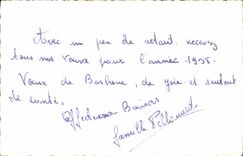 Avec un peu de retard recevez
tous nos vœux pour l'année 1955.
Vœux de Bonheur, de joie et surtout
de santé.
Affectueux Baisers
famille